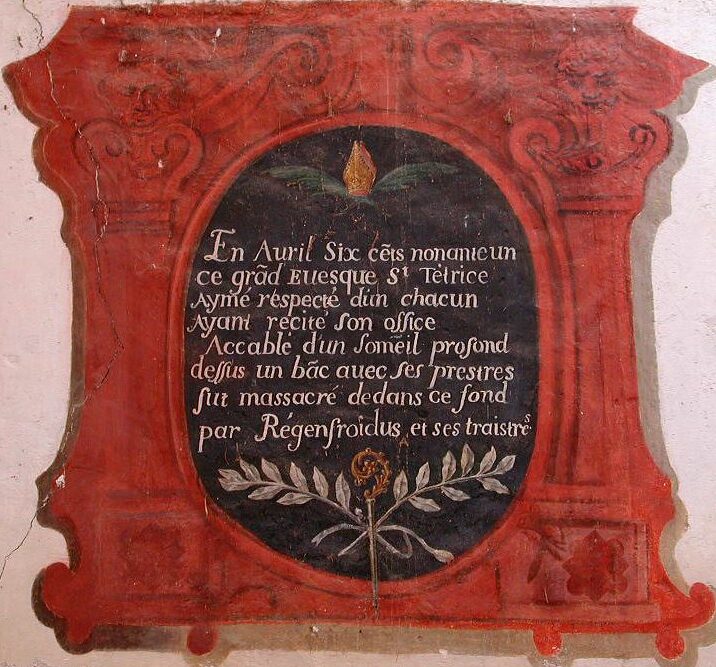 En Auril Six cẽts nonante un
ce grãd Euesque St Tètrice
Aymé réspecté d'un chacun
Ayant récité son office
Accablé d'un somẽil profond
dessus un bãc auec ses prestres
fut massacré dedans ce fond
par Régenfroidus et ses traistrẽs